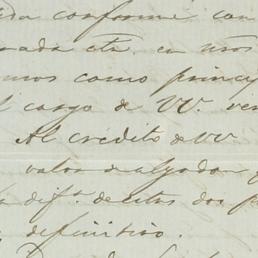 da conforme con
cda cta. en ntos
mos como princip
l cargo de VV. ven
Al crédito de VV
valor de algodon
difa. de estos dos p
definitivo.